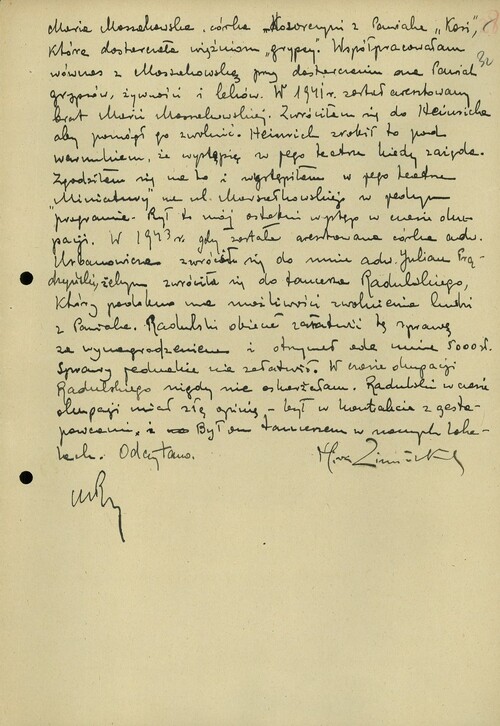 Maria Moszakowska, córka „Kosarzyni z Pawiaka „Kasi",
która dostarczała więźniom „grypsy". Współpracowałam
32
wówczas z Moszakowską przy dostarczeniu na Pawiak
grypsów, żywności i leków. W 1941 r. został aresztowany
brat Marii Moszakowskiej. Zwróciłam się do Heinricha
aby pomógł go zwolnić. Heinrich zrobił to pod
warunkiem, że wystąpię w jego teatrze kiedy zajdę.
Zgodziłam się na to i wystąpiłam w jego teatrze
„Miniatury" na ul. Marszałkowskiej w jednym
programie. Był to mój ostatni występ w czasie oku-
pacji. W 1943 r. gdy została aresztowana córka adw.
Urbanowicza zwrócił się do mnie adw. Julian
zwróciła się do tancerza Radulskiego,
który podobno ma możliwości zwolnienia ludzi
z Pawiaka. Radulski obiecał załatwić tę sprawę
za wynagrodzeniem i otrzymał ode mnie 5000 zł.
Sprawy jednakże nie załatwił. W czasie okupacji
Radulskiego nigdy nie oskarżałam. Radulski w czasie
okupacji miał złą opinię – był w kontakcie z gesta-
powcami, i Był on tancerzem w nocnych loka-
lach. Odczytano.
Mira Zimińska